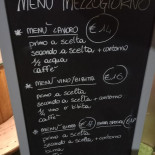 MENÙ MEZZOGIORNO
* MENÙ LAVORO €14
primo a scelta
secondo a scelta + contorno
1/2 acqua
caffè
* MENÙ VINO/BIBITA €16
primo a scelta
secondo a scelta + contorno
1/4 vino o bibita
caffè
* MENÙ
primo a scelta
secondo a scelta + contorno